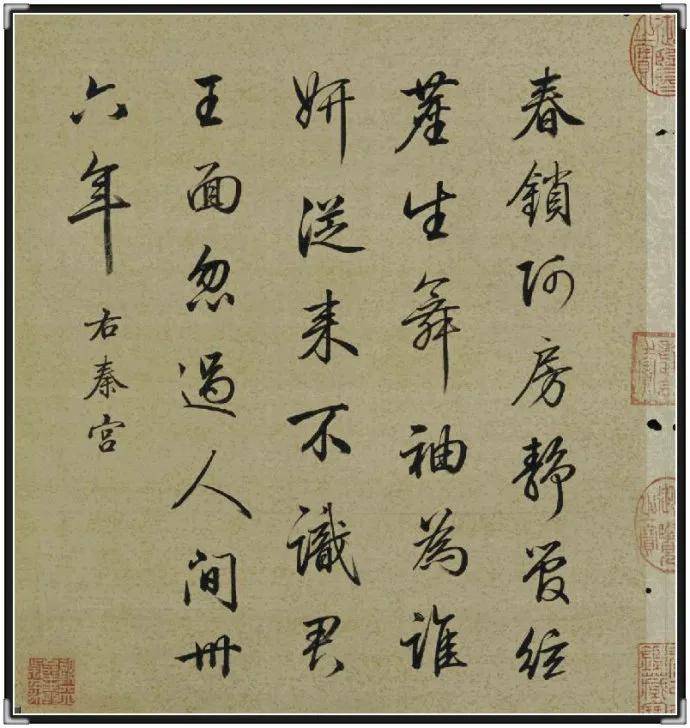 春鎖阿房静管絃
塵生舞袖為誰
妍從来不識君
王面忽過人間卅
六年
右秦宫